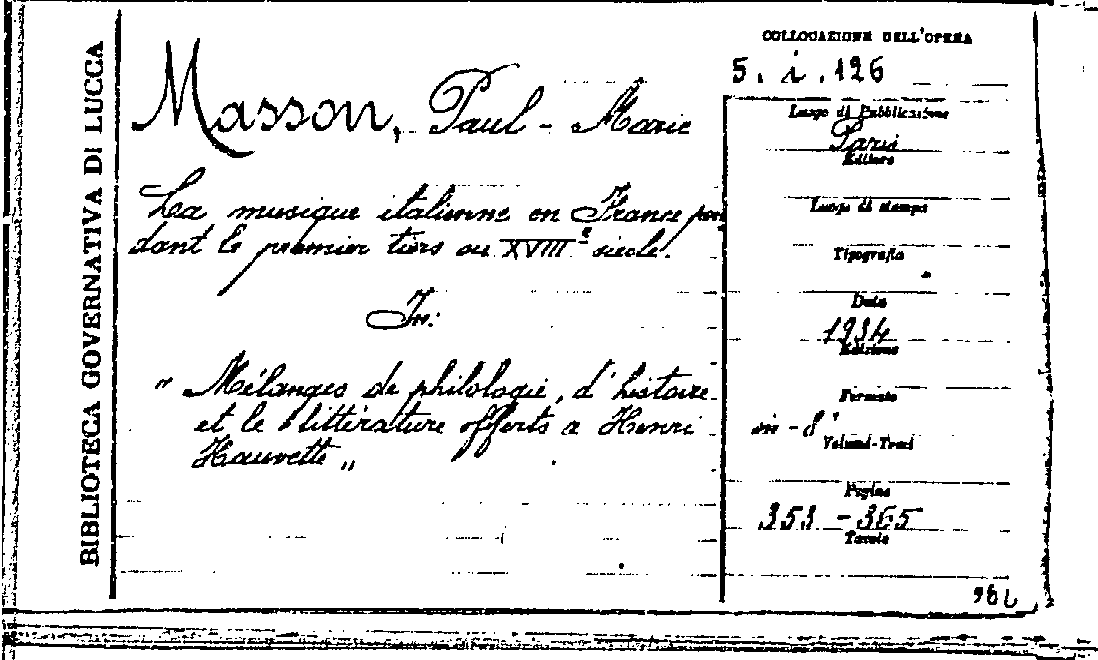 BIBLIOTECA GOVERNATIVA DI LUCCA
COLLOCAZIONE DELL'OPERA
5. i. 126
Masson, Paul - Marie
La musique italienne en France pen
dant le premier tiers du XVIIIe siècle.
In:
" Mélanges de philologie, d'histoire
et de littérature offerts a Henri
Hauvette "
Luogo di Pubblicazione
Paris
Editore
Luogo di stampa
Tipografia
Data
1934
Edizione
Formato
in-8°
Volumi-Tomi
Pagine
353 - 365
Tavole